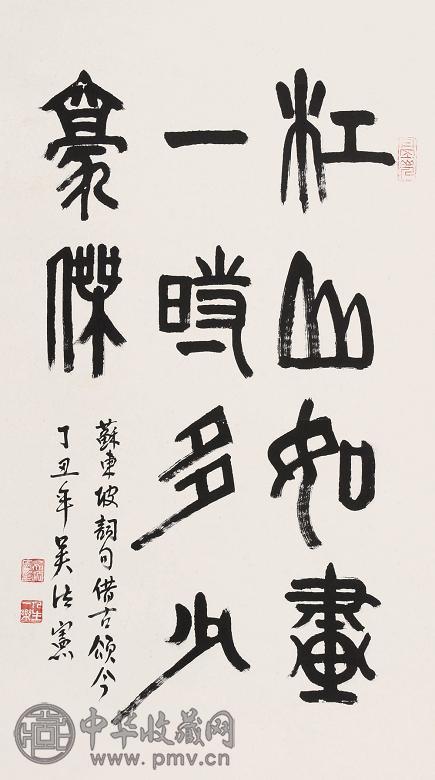 江山如畫
一時多少
豪傑
蘇東坡詞句借古頌今
丁丑年吴法憲
中华收藏网
www.pmv.cn